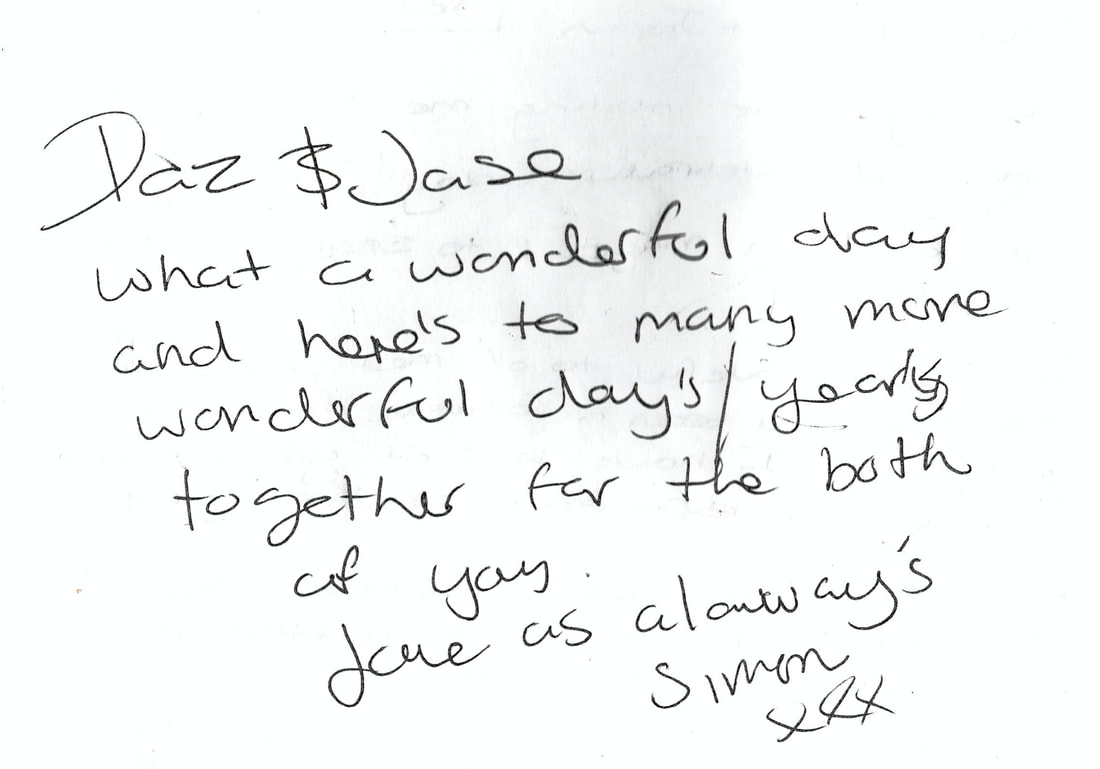 Daz & Jase
what a wonderful day
and here's to many more
wonderful day's / years
together for the both
of you.
Love as always's
Simon
xxx